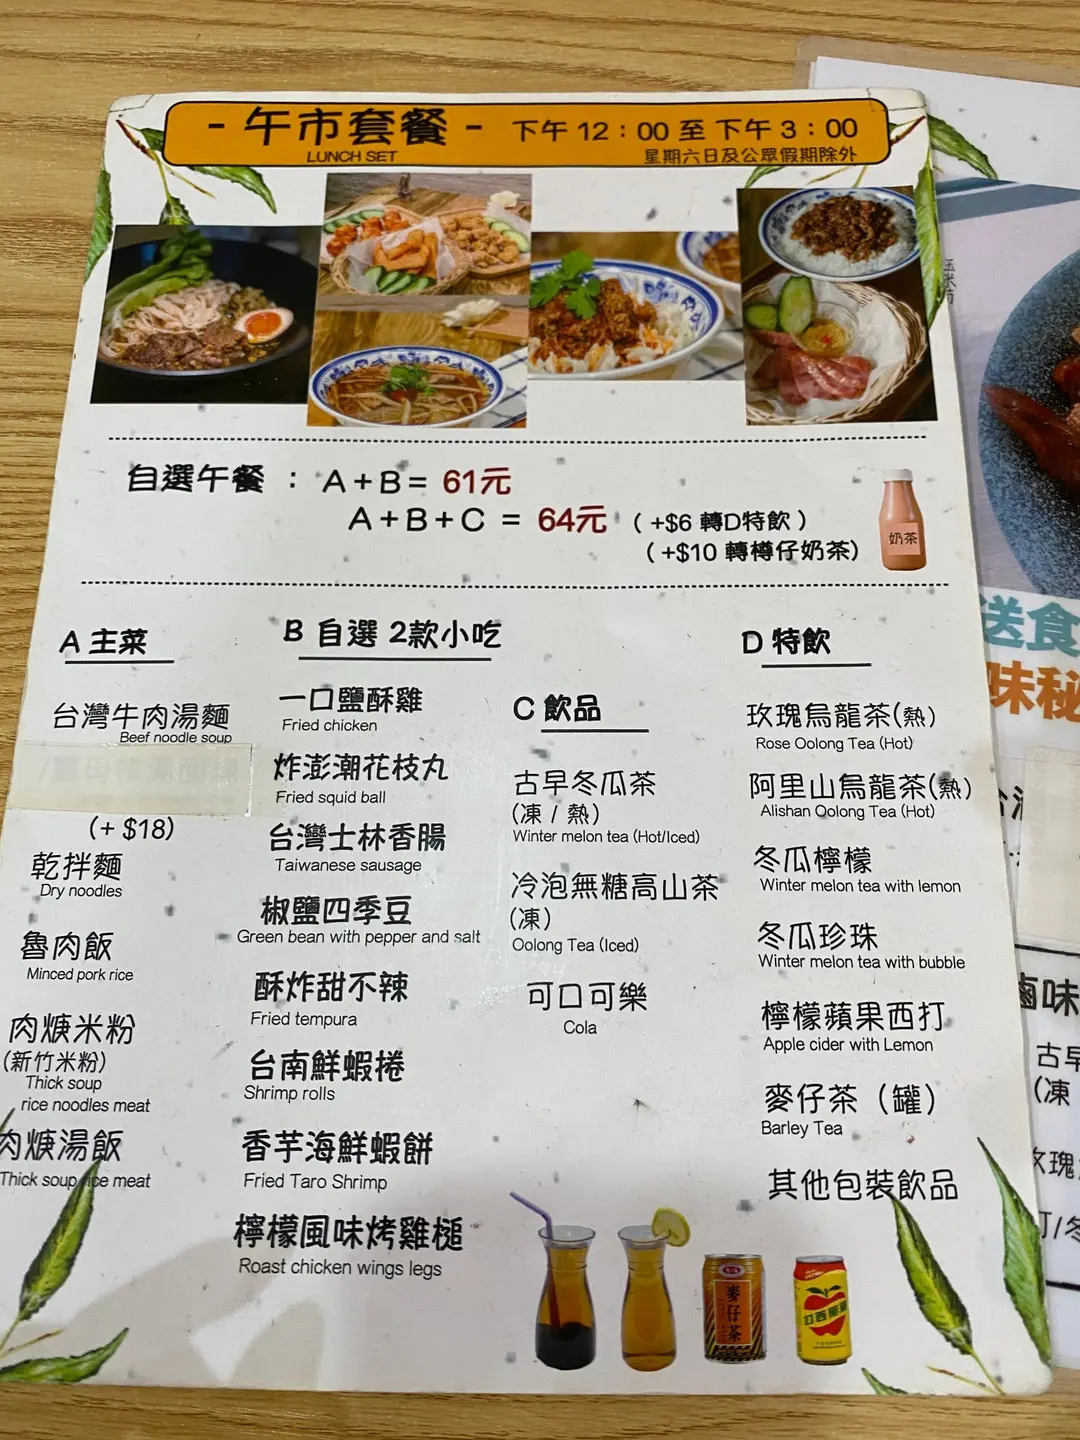 - 午市套餐 - 下午 12：00 至 下午 3：00
LUNCH SET 星期六日及公眾假期除外
自選午餐 ： A+B= 61元
A+B+C = 64元 ( +$6 轉D特飲 )
( +$10 轉樽仔奶茶)
奶茶
A 主菜
台灣牛肉湯麵
Beef noodle soup
(+ $18)
乾拌麵
Dry noodles
魯肉飯
Minced pork rice
肉焿米粉
(新竹米粉)
Thick soup
rice noodles meat
肉焿湯飯
Thick soup rice meat
B 自選 2款小吃
一口鹽酥雞
Fried chicken
炸澎潮花枝丸
Fried squid ball
台灣士林香腸
Taiwanese sausage
椒鹽四季豆
Green bean with pepper and salt
酥炸甜不辣
Fried tempura
台南鮮蝦捲
Shrimp rolls
香芋海鮮蝦餅
Fried Taro Shrimp
檸檬風味烤雞槌
Roast chicken wings legs
C 飲品
古早冬瓜茶
(凍 / 熱)
Winter melon tea (Hot/Iced)
冷泡無糖高山茶
(凍)
Oolong Tea (Iced)
可口可樂
Cola
D 特飲
玫瑰烏龍茶(熱)
Rose Oolong Tea (Hot)
阿里山烏龍茶(熱)
Alishan Oolong Tea (Hot)
冬瓜檸檬
Winter melon tea with lemon
冬瓜珍珠
Winter melon tea with bubble
檸檬蘋果西打
Apple cider with Lemon
麥仔茶（罐）
Barley Tea
其他包裝飲品
麥仔茶
送食
味秘
滷味
古早
(凍
玫瑰